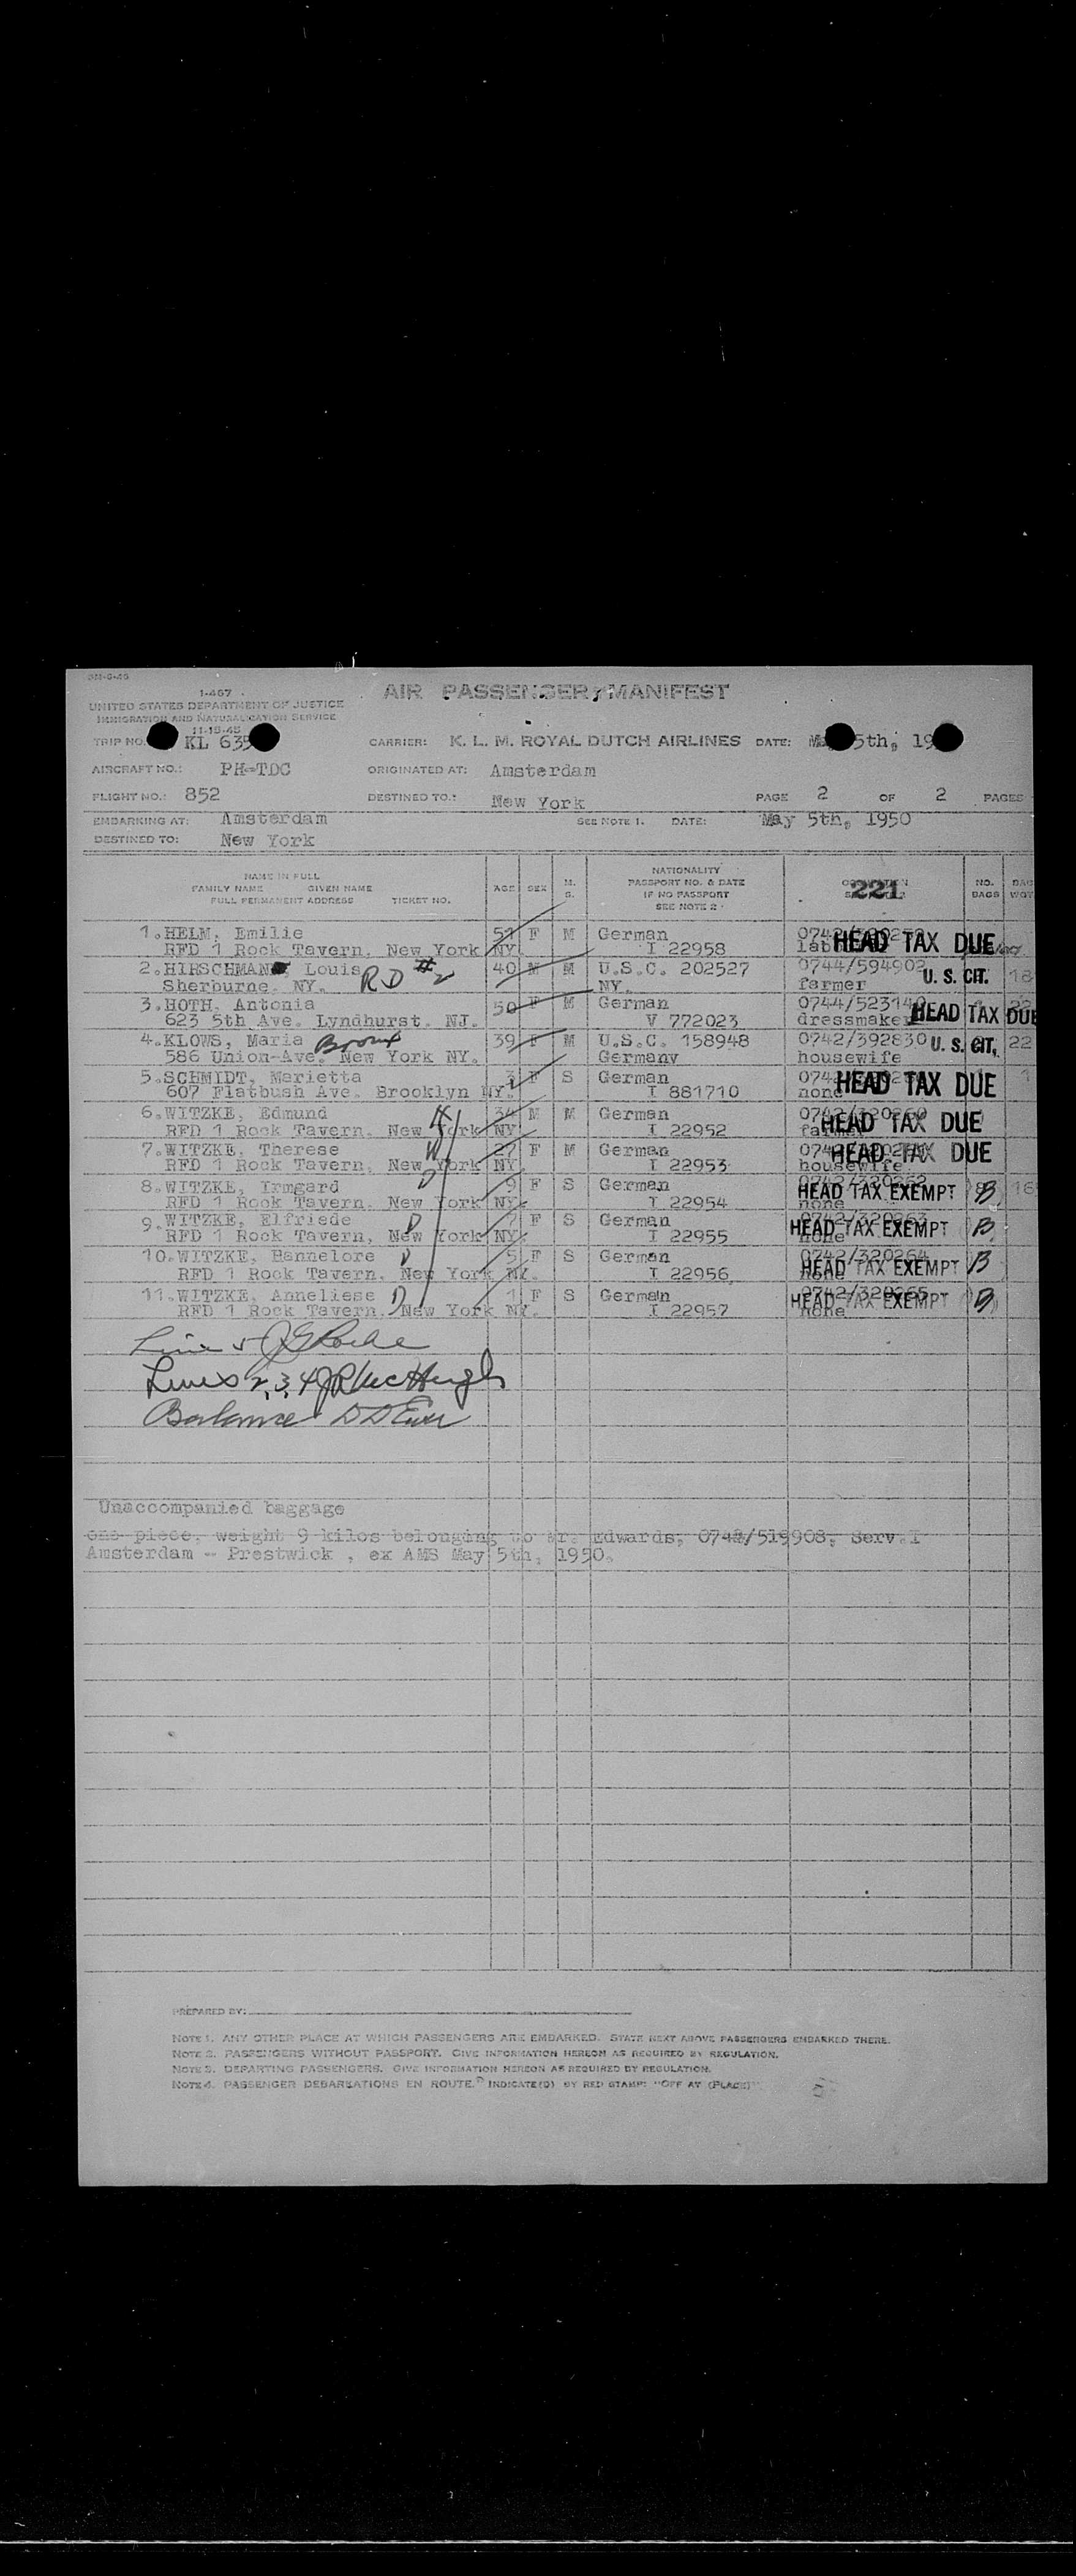 AIR PASSENGER MANIFEST
1-467
UNITED STATES DEPARTMENT OF JUSTICE
IMMIGRATION AND NATURALIZATION SERVICE
11-15-45
TRIP NO. KL 635 CARRIER: K. L. M. ROYAL DUTCH AIRLINES DATE: 5th, 19
AIRCRAFT NO.: PH-TDC ORIGINATED AT: Amsterdam
FLIGHT NO.: 852 DESTINED TO.: New York PAGE 2 OF 2 PAGES
EMBARKING AT: Amsterdam SEE NOTE 1. DATE: May 5th, 1950
DESTINED TO: New York
NAME IN FULL
FAMILY NAME GIVEN NAME
FULL PERMANENT ADDRESS TICKET NO.
AGE SEX M. S.
NATIONALITY
PASSPORT NO. & DATE
IF NO PASSPORT
SEE NOTE 2
221
NO. BAGS
1. HELM, Emilie F M German
RFD 1 Rock Tavern, New York NY. I 22958 HEAD TAX DUE
2. HIRSCHMAN, Louis RD #2 40 M M U.S.C. 202527 0744/594902 U. S. CIT. 18
Sherburne, NY. NY. farmer
3. HOTH, Antonia 50 F M German HEAD TAX DUE
623 5th Ave. Lyndhurst. NJ. V 772023 dressmaker
4. KLOWS, Maria Bronx 39 F M U.S.C. 158948 0742/392830 U. S. CIT. 22
586 Union-Ave. New York NY. Germany housewife
5. SCHMIDT, Marietta F S German HEAD TAX DUE
607 Flatbush Ave. Brooklyn NY. I 881710 none
6. WITZKE, Edmund 34 M M German HEAD TAX DUE
RFD 1 Rock Tavern, New York NY I 22952
7. WITZKE, Therese W 27 F M German HEAD TAX DUE
RFD 1 Rock Tavern, New York NY I 22953 housewife
8. WITZKE, Irmgard D 9 F S German HEAD TAX EXEMPT B 16
RFD 1 Rock Tavern. New York NY. I 22954 none
9. WITZKE, Elfriede D 7 F S German HEAD TAX EXEMPT B
RFD 1 Rock Tavern, New York NY. I 22955 none
10. WITZKE, Hannelore D 5 F S German 0742/320264 HEAD TAX EXEMPT B
RFD 1 Rock Tavern. New York NY. I 22956 none
11. WITZKE, Anneliese D 1 F S German 0742/320265 HEAD TAX EXEMPT B
RFD 1 Rock Tavern. New York NY. I 22957 none
Lines 2, 3, 4 JR McHugh
Balance
Unaccompanied baggage
one piece, weight 9 kilos belonging to Mr. Edwards, Serv.I
Amsterdam - Prestwick , ex AMS May 5th, 1950.
PREPARED BY:
NOTE 1. ANY OTHER PLACE AT WHICH PASSENGERS ARE EMBARKED. STATE NEXT ABOVE PASSENGERS EMBARKED THERE.
NOTE 2. PASSENGERS WITHOUT PASSPORT. GIVE INFORMATION HEREON AS REQUIRED BY REGULATION.
NOTE 3. DEPARTING PASSENGERS. GIVE INFORMATION HEREON AS REQUIRED BY REGULATION.
NOTE 4. PASSENGER DEBARKATIONS EN ROUTE. INDICATE(D) BY RED STAMP: "OFF AT (PLACE)"